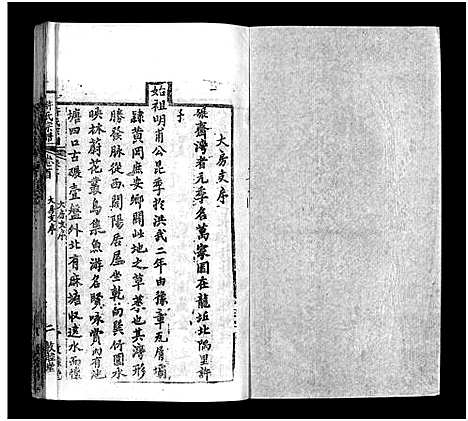 大房支序
碾齋灣者元季名萬家園在龍坵北隅里許
始祖明甫公昆季於洪武二年由豫章瓦屑壩
隸黃岡庶安鄉闢此地之草萊也其灣形
勝發脉從西關陽居屋坐乾向巽竹園水
映林蔚花叢鳥集魚游名賢咏賞內有池
塘四口古碾壹盤外北有麻塘收遠水而
許氏宗譜
卷首
大房支序
二